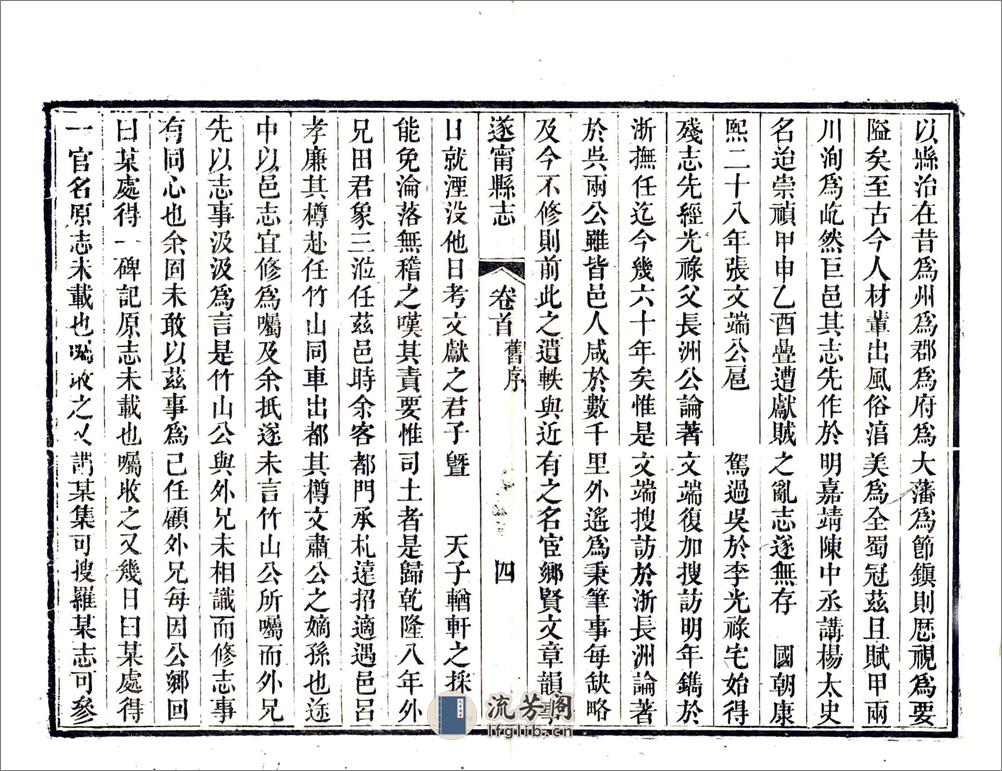 以縣治在昔為州為郡為府為大藩為節鎮則厯視為要
隘矣至古今人材輩出風俗湻美為全蜀冠茲且賦甲兩
川洵為屹然巨邑其志先作於明嘉靖陳中丞講楊太史
名迨崇禎甲申乙酉疊遭獻賊之亂志遂無存　國朝康
熙二十八年張文端公扈　　駕過吳於李光祿宅始得
殘志先經光祿父長洲公論著文端復加搜訪明年鐫於
浙撫任迄今幾六十年矣惟是文端搜訪於浙長洲論著
於吳兩公雖皆邑人咸於數千里外遙為秉筆事每缺略
及今不修則前此之遺軼與近有之名宦鄉賢文章韻事
遂甯縣志　卷首　舊序　四
日就湮没他日考文獻之君子暨　　天子輶軒之採
能免淪落無稽之嘆其責要惟司土者是歸乾隆八年外
兄田君象三涖任茲邑時余客都門承札遠招適遇邑呂
孝廉其樽赴任竹山同車出都其樽文肅公之嫡孫也途
中以邑志宜修為囑及余抵遂未言竹山公所囑而外兄
先以志事汲汲為言是竹山公與外兄未相識而修志事
有同心也余固未敢以茲事為己任顧外兄每因公鄉回
曰某處得一碑記原志未載也囑收之又幾日曰某處得
一官名原志未載也囑收之又講某集可搜羅某志可參
流芳阁
lfglib.cn